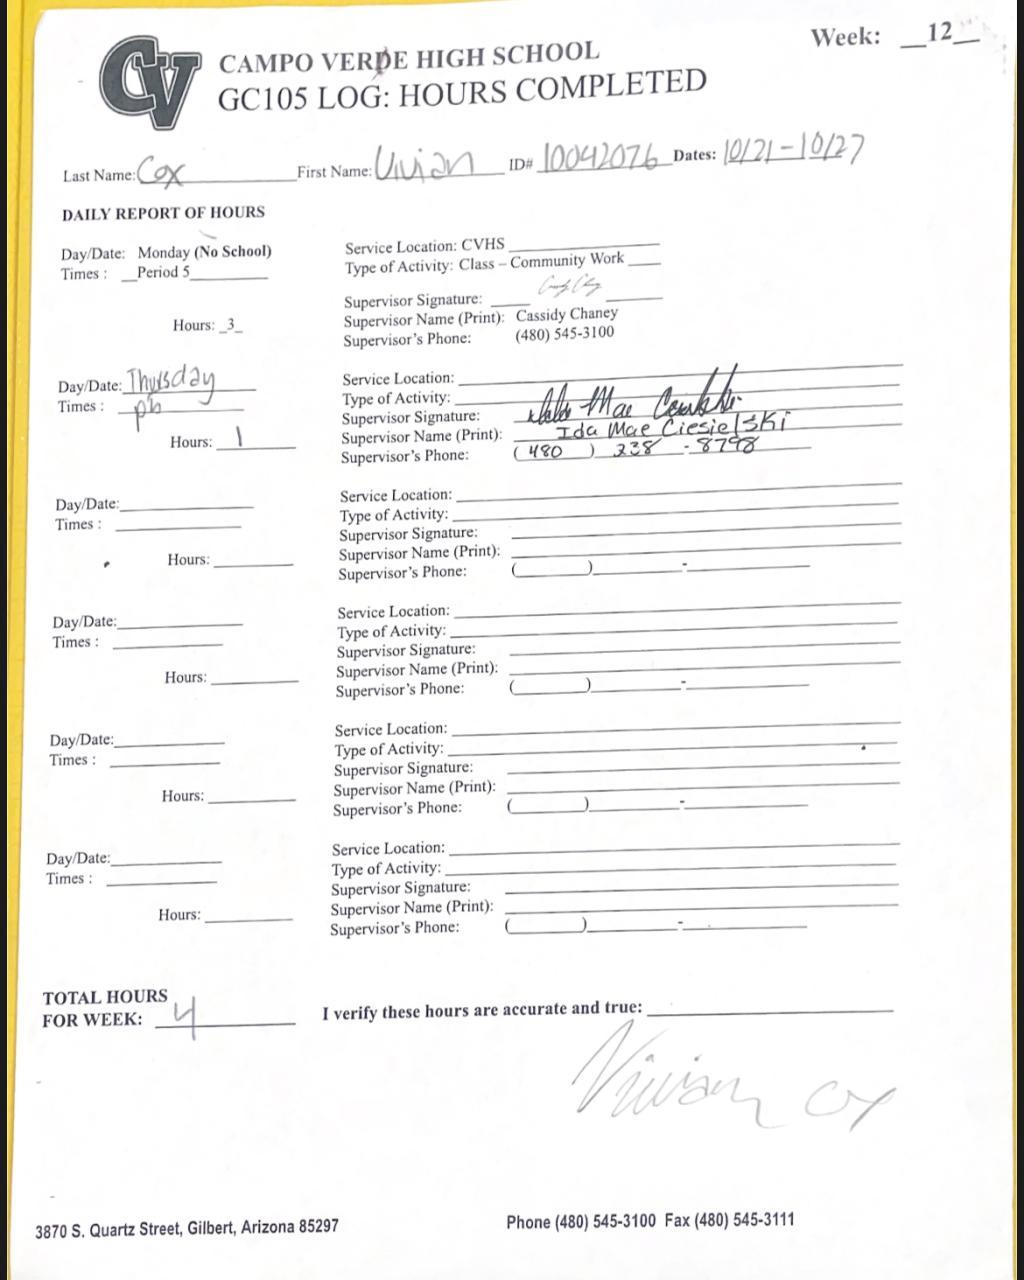 CV
CAMPO VERDE HIGH SCHOOL
Week: __12__
GC105 LOG: HOURS COMPLETED
Last Name: Cox First Name: Vivian ID# 10042076 Dates: 10/21-10/27
DAILY REPORT OF HOURS
Day/Date: Monday (No School)
Times : __Period 5
Hours: _3_
Service Location: CVHS
Type of Activity: Class – Community Work
Supervisor Signature:
Supervisor Name (Print): Cassidy Chaney
Supervisor's Phone: (480) 545-3100
Day/Date: Thursday
Times : p6
Hours: 1
Service Location:
Type of Activity:
Supervisor Signature: Mae
Supervisor Name (Print): Ida Mae Ciesielski
Supervisor's Phone: (480) 238-8798
Day/Date:
Times :
Hours:
Service Location:
Type of Activity:
Supervisor Signature:
Supervisor Name (Print):
Supervisor's Phone: ( ) -
Day/Date:
Times :
Hours:
Service Location:
Type of Activity:
Supervisor Signature:
Supervisor Name (Print):
Supervisor's Phone: ( ) -
Day/Date:
Times :
Hours:
Service Location:
Type of Activity:
Supervisor Signature:
Supervisor Name (Print):
Supervisor's Phone: ( ) -
Day/Date:
Times :
Hours:
Service Location:
Type of Activity:
Supervisor Signature:
Supervisor Name (Print):
Supervisor's Phone: ( ) -
TOTAL HOURS
FOR WEEK: 4
I verify these hours are accurate and true:
Vivian Cox
3870 S. Quartz Street, Gilbert, Arizona 85297
Phone (480) 545-3100 Fax (480) 545-3111